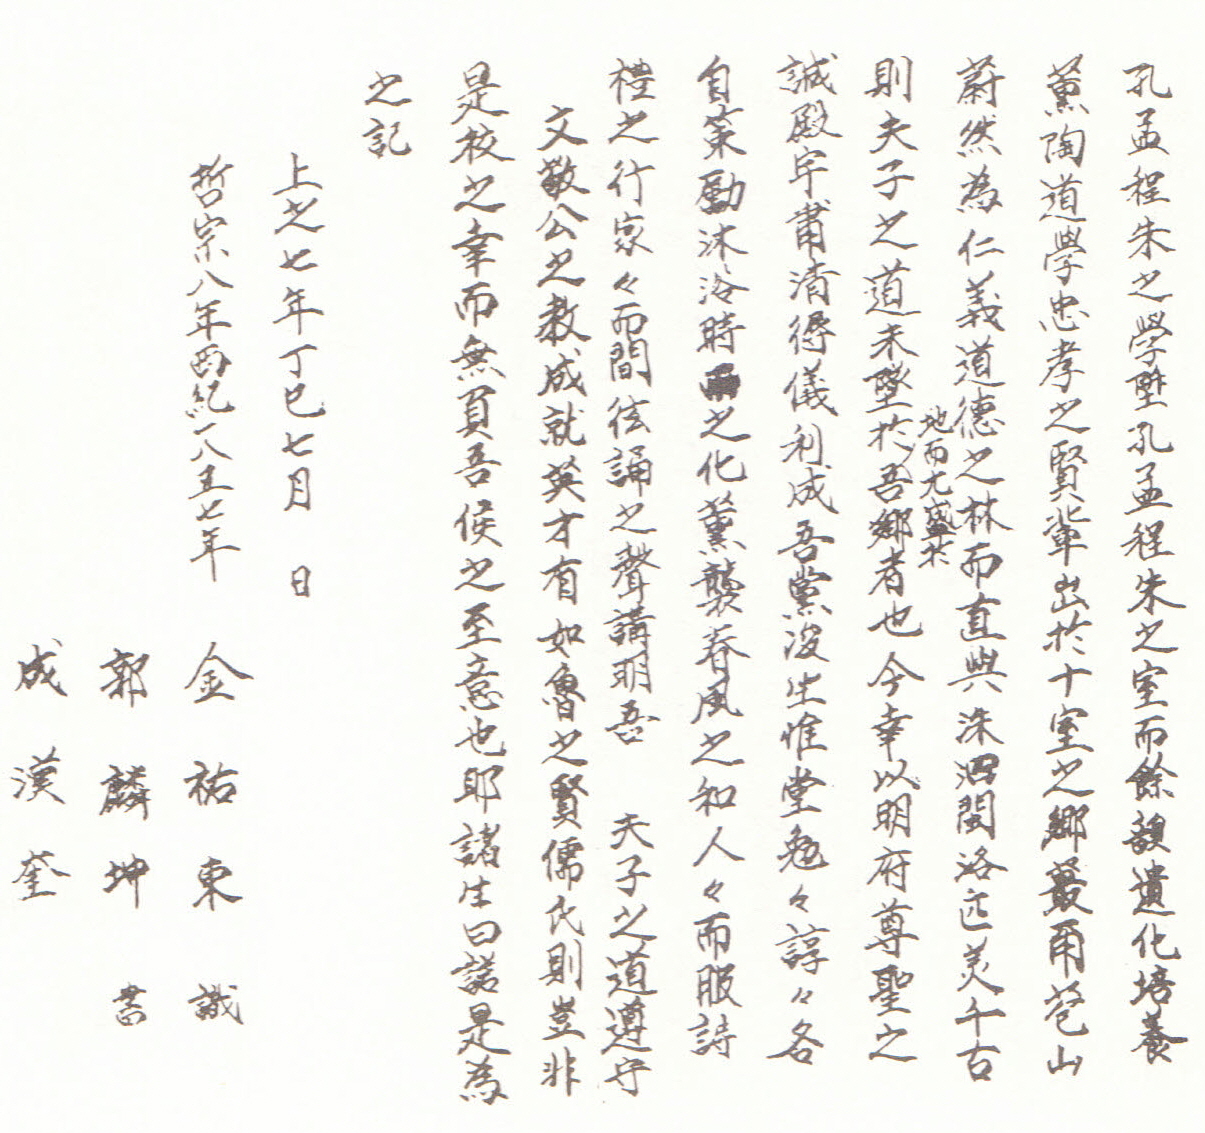 孔孟程朱之學陞孔孟程朱之室而餘韻遺化培養
薰陶道學忠孝之賢輩出於十室之鄉蕞爾苞山
蔚然為仁義道德之林而直與洙泗閩洛匹美千古
則夫子之道未墜於吾鄉者也今幸以明府尊聖之
地而尤盛於
誠殿宇肅清得儀利成吾黨後生惟堂勉々諄々各
自策勵沐浴時雨之化薰襲春風之和人々而服詩
禮之行家々而間弦誦之聲講明吾 夫子之道遵守
文敬公之教成就英才有如魯之賢儒氏則豈非
是校之幸而無負吾侯之至意也耶諸生曰諾是為
之記
上之七年丁巳七月 日
哲宗八年西紀一八五七年
金祐東 識
郭麟坤 書
成漢奎